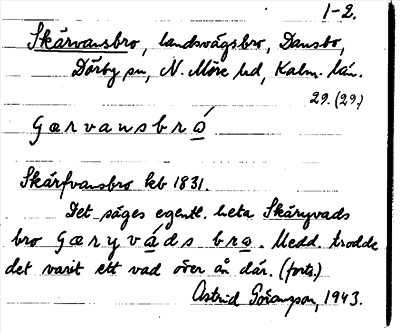 1-2.
Skärvansbro, landsvägsbro, Dansbo,
Dörby sn, N. Möre hd, Kalm. län.
29. (29.)
Gærvansbrå
Skärfvansbro kb 1831.
Det säges egentl. heta Skäryvads
bro Gæryvåds bro. Medd. trodde
det varit ett vad över ån där. (forts.)
Astrid Göranson, 1943.